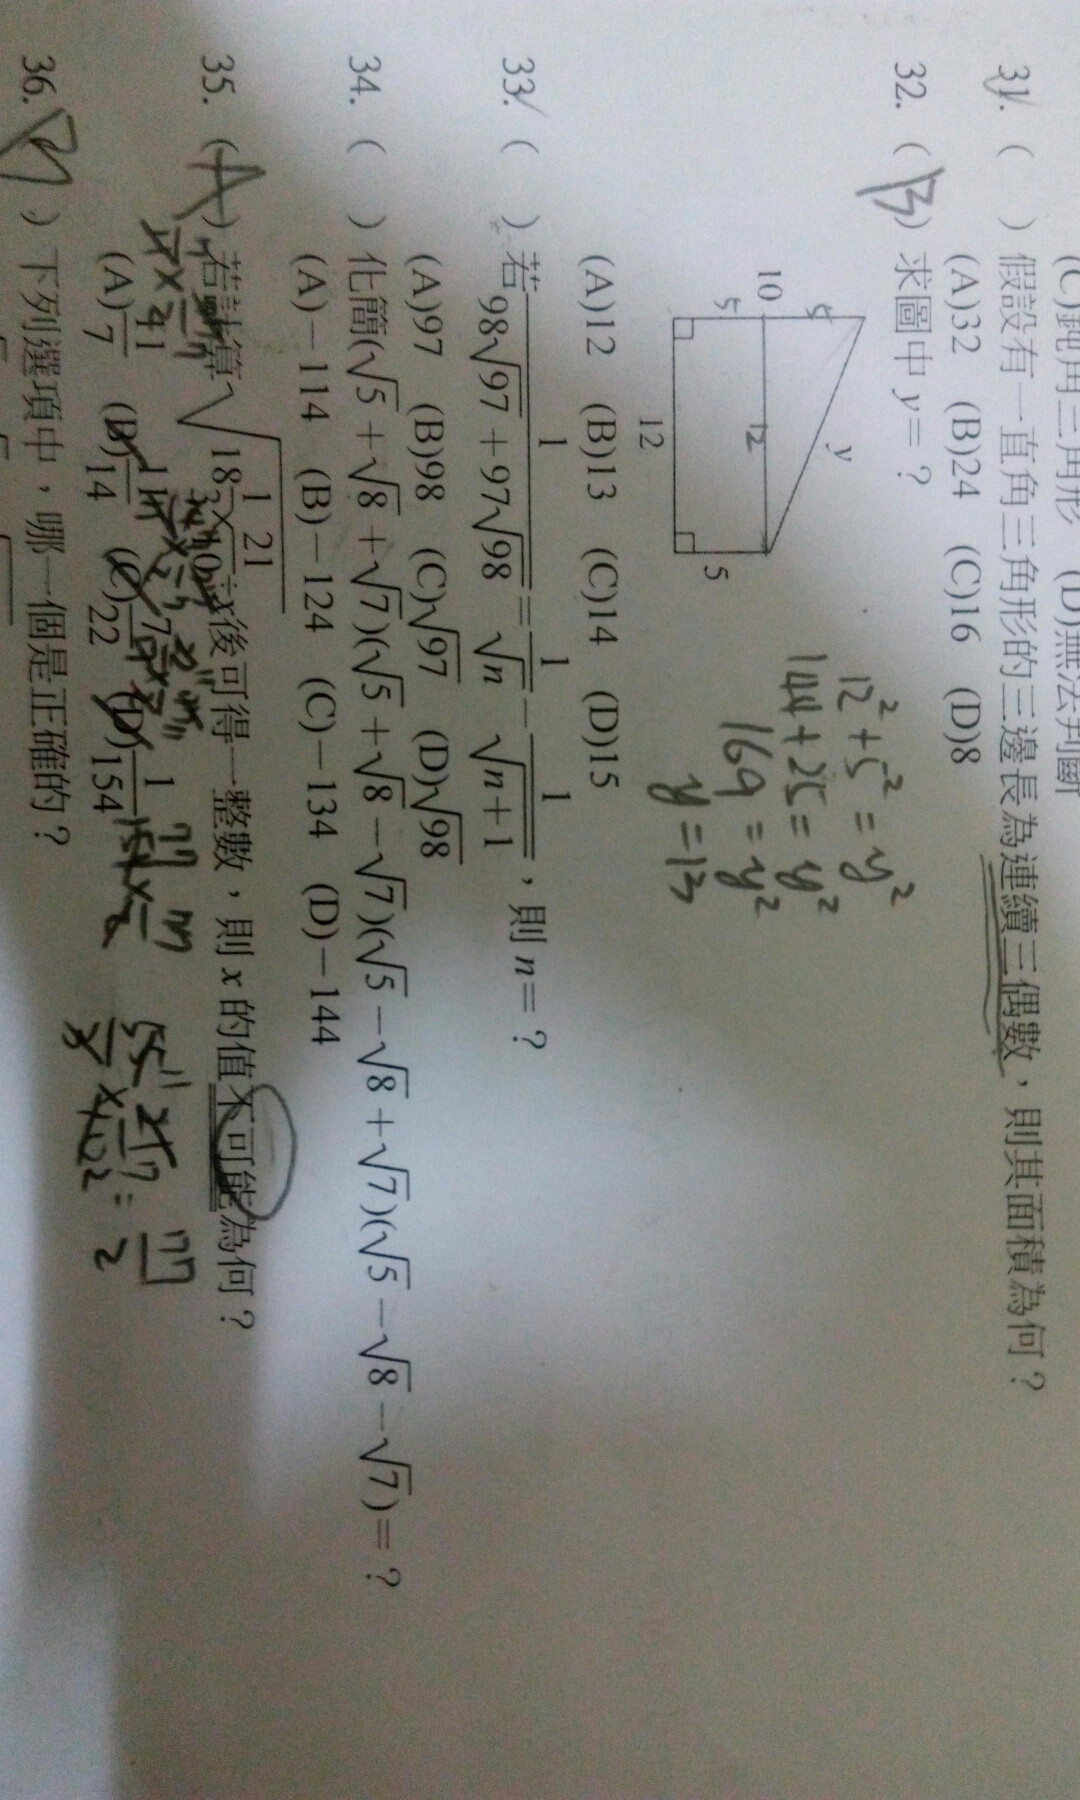 (C)鈍角三角形 (D)無法判斷
31. ( ) 假設有一直角三角形的三邊長為連續三偶數，則其面積為何？
(A)32 (B)24 (C)16 (D)8
32. (B) 求圖中 y=？
y
10
5
5
12
5
12
12² + 5² = y²
144 + 25 = y²
169 = y²
y = 13
(A)12 (B)13 (C)14 (D)15
33. ( ) 若 1/(98√97 + 97√98) = 1/√n − 1/√(n+1)，則 n=？
(A)97 (B)98 (C)√97 (D)√98
34. ( ) 化簡(√5 + √8 + √7)(√5 + √8 − √7)(√5 − √8 + √7)(√5 − √8 − √7)=？
(A)−114 (B)−124 (C)−134 (D)−144
35. (A) 若計算 後可得一整數，則 x 的值不可能為何？
(A) (B) (C) (D)
36. (B) 下列選項中，哪一個是正確的？